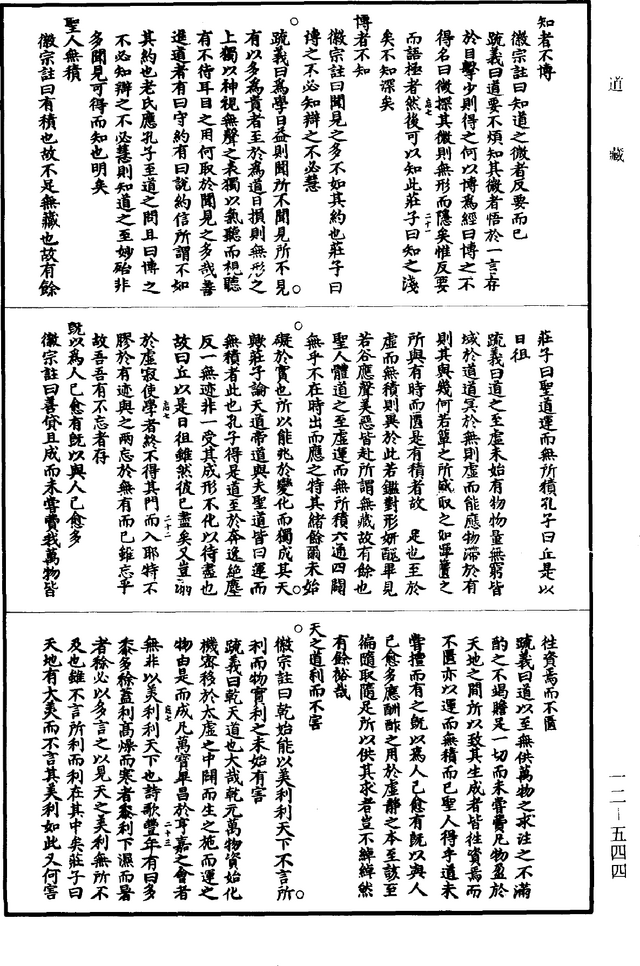 道藏
知者不博
徽宗註曰知道之微者反要而已
疏義曰道要不煩知其微者悟於一言存
於目擊少則得之何以博為經曰博之不
得名曰微探其微則無形而隱矣惟反要
而語極者然後可以知此莊子曰知之淺
矣不知深矣
博者不知
徽宗註曰聞見之多不如其約也莊子曰
博之不必知辯之不必慧
疏義曰為學日益則聞所不聞見所不見
有以多為貴者至於為道日損則無形之
上獨以神視無聲之表獨以氣聽而視聽
有不待耳目之用何取於聞見之多哉善
進道者有曰守約有曰說約信所謂不如
其約也老氏應孔子至道之問且曰博之
不必知辯之不必慧則知道之至妙殆非
多聞見可得而知也明矣
聖人無積
徽宗註曰有積也故不足無藏也故有餘
莊子曰聖道運而無所積孔子曰丘是以
日徂
疏義曰道之至虛未始有物物量無窮皆
域於道道冥於無則虛而能應物滯於有
則其與幾何若簞之所盛取之如單簣之
所與有時而匱是有積者故 足也至於
虛而無積則異於此若鑑對形妍醜畢見
若谷應聲美惡皆赴所謂無藏故有餘也
聖人體道之至虛運而無所積六通四闢
無乎不在時出而應之特其緒餘爾未始
礙於實也所以能兆於變化而獨成其天
歟莊子論天道帝道與夫聖道皆曰運而
無積者此也孔子得是道至於奔逸絕塵
反一無迹非一受其成形不化以待盡也
故曰丘以是日徂雖然彼已盡矣又豈溺
於虛寂使學者終不得其門而入耶特不
膠於有迹與之兩忘於無有而已雖忘乎
故吾吾有不忘者存
既以為人己愈有既以與人己愈多
徽宗註曰善貸且成而未嘗費我萬物皆
往資焉而不匱
疏義曰道以至無供萬物之求注之不滿
酌之不竭贍足一切而未嘗費凡物盈於
天地之間所以致其生成者皆往資焉而
不匱亦以運而無積而已聖人得乎道未
嘗擅而有之既以為人己愈有既以與人
己愈多應酬酢之用於虛靜之本至該至
徧隨取隨足所以供其求者豈不綽綽然
有餘裕哉
天之道利而不害
徽宗註曰乾始能以美利利天下不言所
利而物實利之未始有害
疏義曰乾天道也大哉乾元萬物資始化
機密移於太虛之中闢而生之施而運之
物由是而成凡萬寶畢昌於亨嘉之會者
無非以美利利天下也詩歌豐年有曰多
黍多稌蓋利高燥而寒者黍利下濕而暑
者稌必以多言之以見天之美利無所不
及也雖不言所利而利在其中矣莊子曰
天地有大美而不言其美利如此又何害
一二-五四四